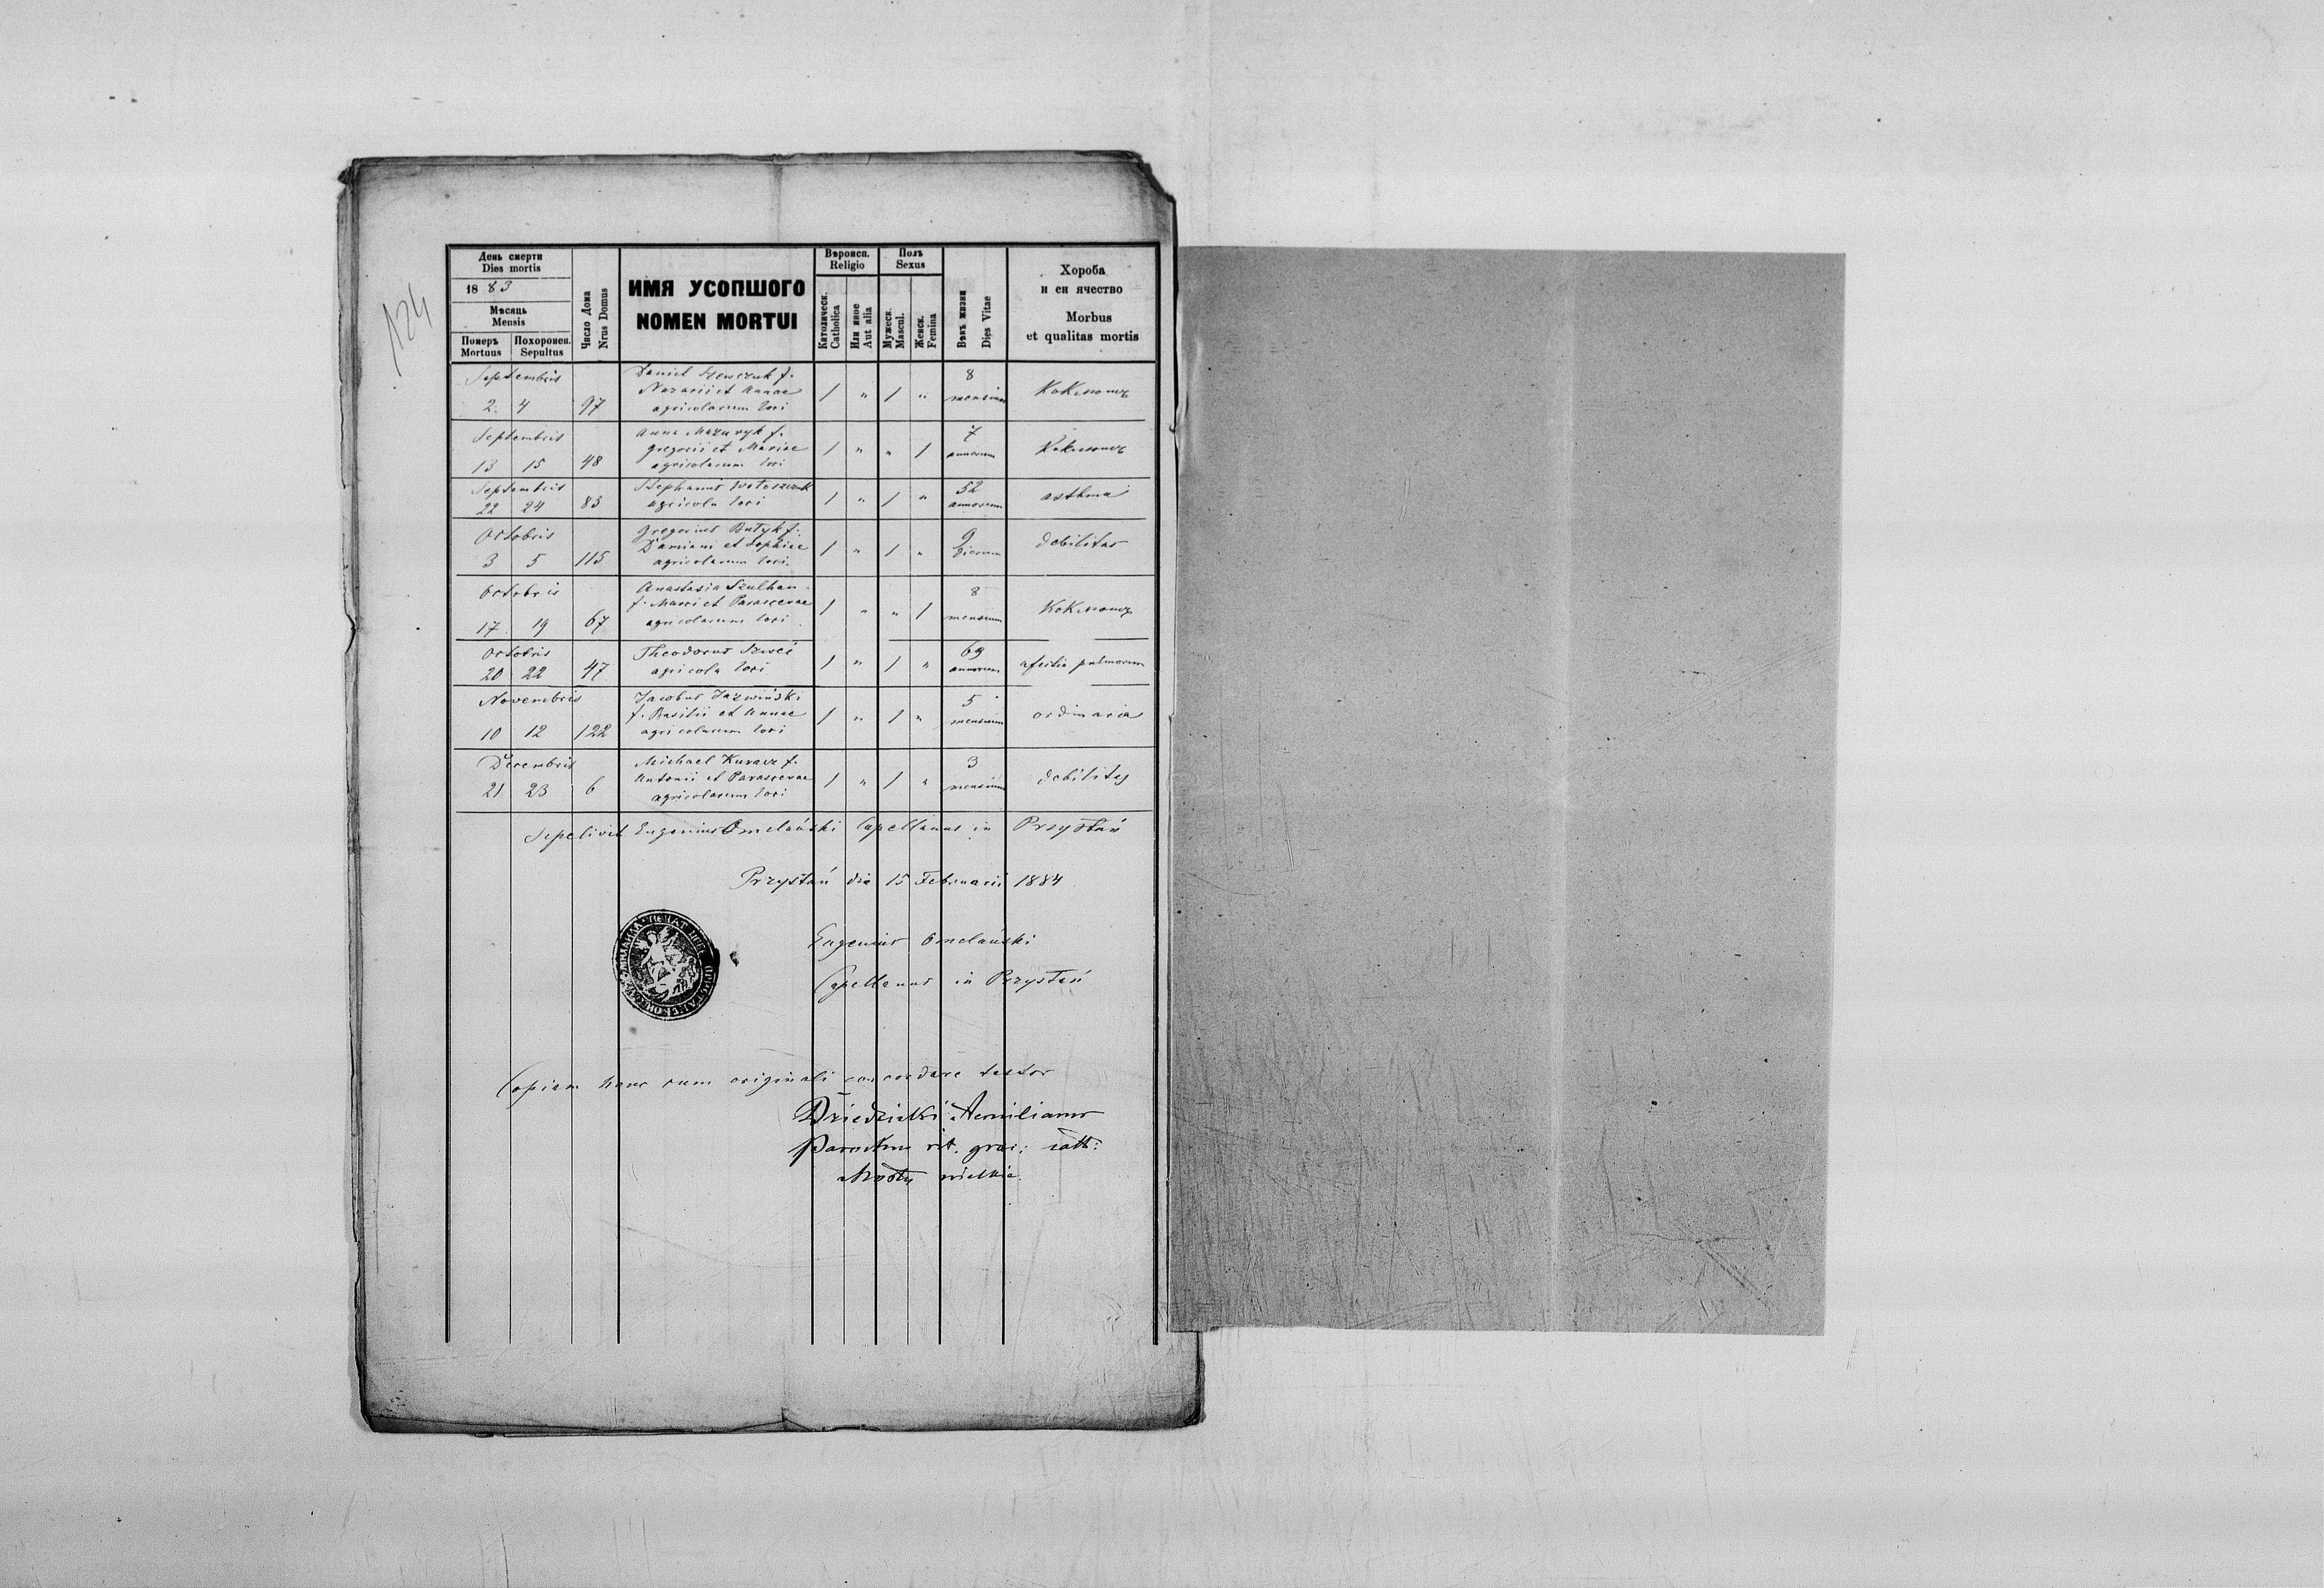 124
День смерти
Dies mortis
1883
Мѣсяць
Mensis
Померъ
Mortuus
Похоронен.
Sepultus
Число Дома
Nrus Domus
ИМЯ УСОПШОГО
NOMEN MORTUI
Вѣроисп.
Religio
Католическ.
Catholica
Или иное
Aut alia
Полъ
Sexus
Мужеск.
Mascul.
Женск.
Femina
Вѣкъ жизни
Dies Vitae
Хороба
и еи ячество
Morbus
et qualitas mortis
Septembris Daniel Szewczuk f. 8
Nazarii et Annae
2. 4 97 agricolarum loci 1 " 1 " mensium
Septembris Anna Mazuryk f. 7
Gregorii et Mariae
13 15 48 agricolarum loci 1 " " 1 annorum
Septembris Stephanus 52
22 24 83 agricola loci 1 " 1 " annorum asthma
Octobris Gregorius Butyk f. 9
Damiani et Sophiae debilitas
3 5 115 agricolarum loci. 1 " 1 " dierum
Octobris Anastasia Szulhan 8
f. Marci et Parascevae
17 19 67 agricolarum loci 1 " " 1 mensium
Octobris Theodorus 69
20 22 47 agricola loci 1 " 1 " annorum pulmorum
Novembris Jacobus Jazwiński 5
f. Basilii et Annae ordinaria
10 12 122 agricolarum loci 1 " 1 " mensium
Decembris Michael Kuracz f. 3
Antonii et Parascevae debilitas
21 23 6 agricolarum loci 1 " 1 " mensium
Sepelivit Eugenius Omelański Capellanus in Przystań
Przystań die 15 Februarii 1884
Eugenius Omelański
Capellanus in Przystań
Copiam hanc cum originali concordare testor
Dziedzicki Aemilianus
Parochus rit. graec: cath:
Mosty wielkie